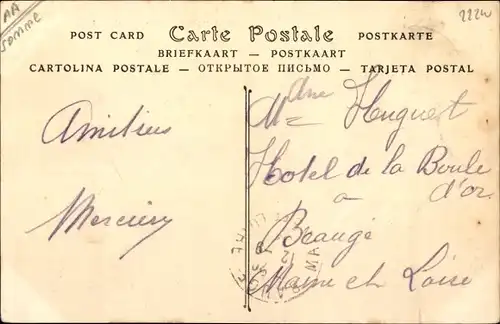 AA
somme
222W
POST CARD Carte Postale POSTKARTE
BRIEFKAART — POSTKAART
CARTOLINA POSTALE — ОТКРЫТОЕ ПИСЬМО — TARJETA POSTAL
Amitiés
Mercier
Mme Huguet
Hotel de la Boule
d'or
a
Beaugé
Maine et Loire